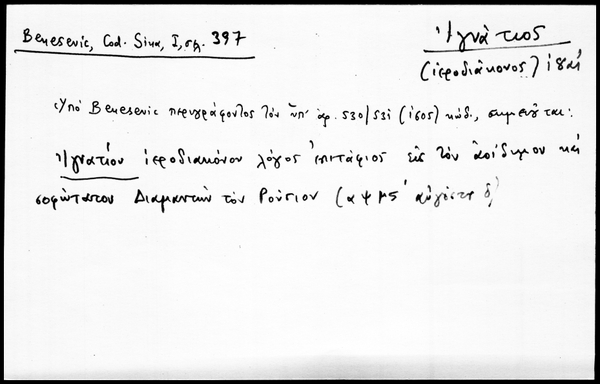 Benesevic, Cod. Sina, I, σελ. 397
Ἰγνάτιος
(ἱεροδιάκονος) ιδ αἰ
Ὑπό Benesevic περιγράφοντος τόν ὑπ' ἀρ. 530/531 (ἰσος) κώδ., σημειοῦται:
Ἰγνατίου ἱεροδιακόνου λόγος ἐπιτάφιος εἰς τόν ἀοίδιμον καί
σοφώτατον Διαμαντῆν τόν Ρούσιον (αψμς' αὐγούστ δ)